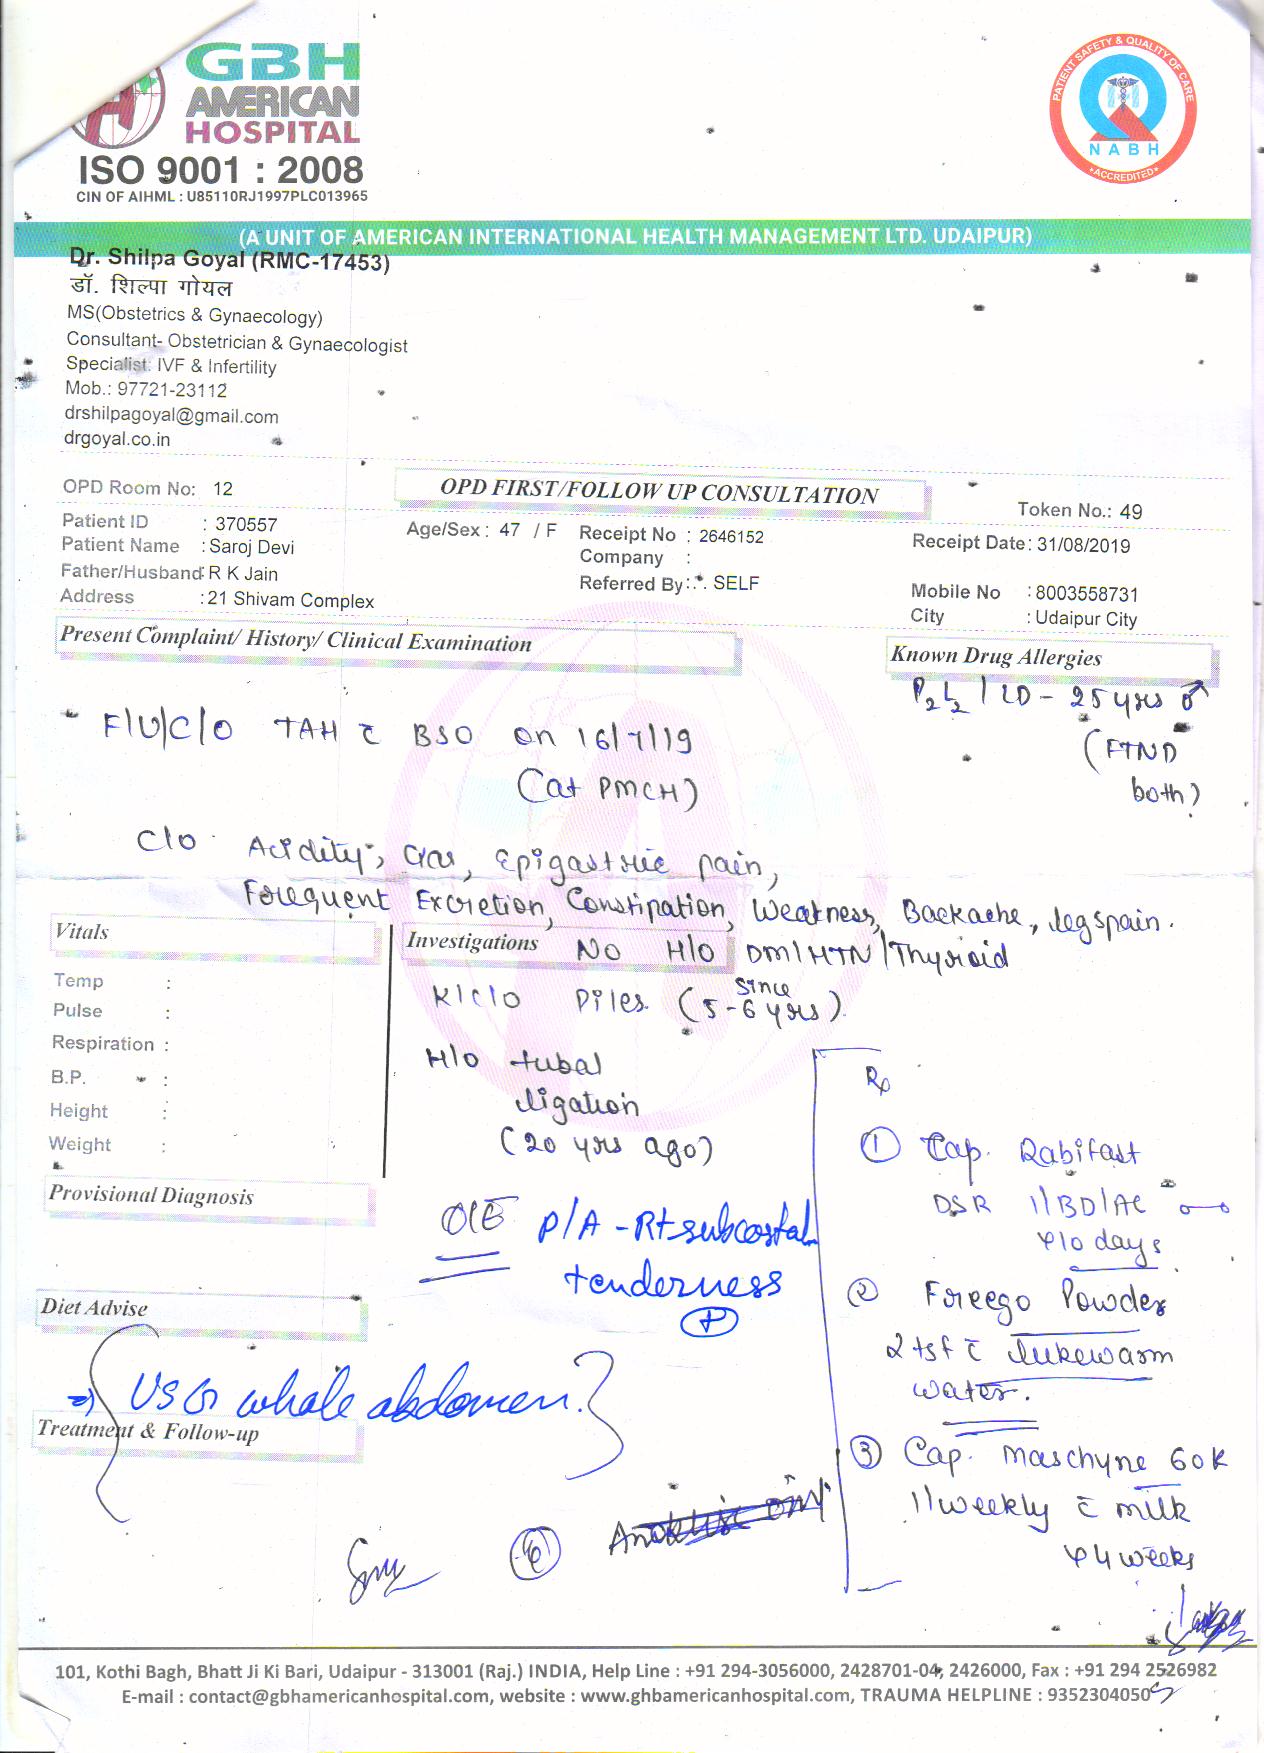 GBH
AMERICAN
HOSPITAL
ISO 9001 : 2008
CIN OF AIHML : U85110RJ1997PLC013965
PATIENT SAFETY & QUALITY OF CARE
NABH
ACCREDITED
(A UNIT OF AMERICAN INTERNATIONAL HEALTH MANAGEMENT LTD. UDAIPUR)
Dr. Shilpa Goyal (RMC-17453)
डॉ. शिल्पा गोयल
MS(Obstetrics & Gynaecology)
Consultant- Obstetrician & Gynaecologist
Specialist: IVF & Infertility
Mob.: 97721-23112
drshilpagoyal@gmail.com
drgoyal.co.in
OPD Room No: 12
OPD FIRST/FOLLOW UP CONSULTATION
Token No.: 49
Patient ID : 370557
Age/Sex : 47 / F
Receipt No : 2646152
Receipt Date: 31/08/2019
Patient Name : Saroj Devi
Company :
Father/Husband: R K Jain
Referred By: . SELF
Mobile No : 8003558731
Address : 21 Shivam Complex
City : Udaipur City
Present Complaint/ History/ Clinical Examination
Known Drug Allergies
P2L2 / LD - 25 yrs ♂
(FTND
both)
F/U/C/O TAH c̄ BSO on 16/7/19
(at PMCH)
C/o Acidity, Gas, Epigastric pain,
Frequent Excretion, Constipation, Weakness, Backache, legspain.
Vitals
Investigations
No H/o DM/HTN/Thyroid
K/C/o Piles (since 5-6 yrs)
H/o tubal
ligation
(20 yrs ago)
Temp :
Pulse :
Respiration :
B.P. :
Height :
Weight :
Provisional Diagnosis
O/E P/A - Rt subcostal
tenderness
(+)
Diet Advise
⇒ USG whole abdomen.
Treatment & Follow-up
Rx
① Cap. Rabifast
DSR 1/BD/AC
x 10 days
② Freego Powder
2 tsf c̄ lukewarm
water.
③ Cap. Maschyne 60K
1/weekly c̄ milk
x 4 weeks
101, Kothi Bagh, Bhatt Ji Ki Bari, Udaipur - 313001 (Raj.) INDIA, Help Line : +91 294-3056000, 2428701-04, 2426000, Fax : +91 294 2526982
E-mail : contact@gbhamericanhospital.com, website : www.ghbamericanhospital.com, TRAUMA HELPLINE : 9352304050